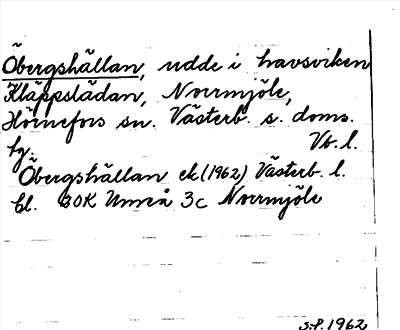 Öbergshällan, udde i havsviken
Kläppslädan, Norrmjöle,
Hörnefors sn. Västerb. s. doms.
hg. Vb. l.
Öbergshällan ek (1962) Västerb. l.
bl. 20K Umeå 3c Norrmjöle
S.P. 1962